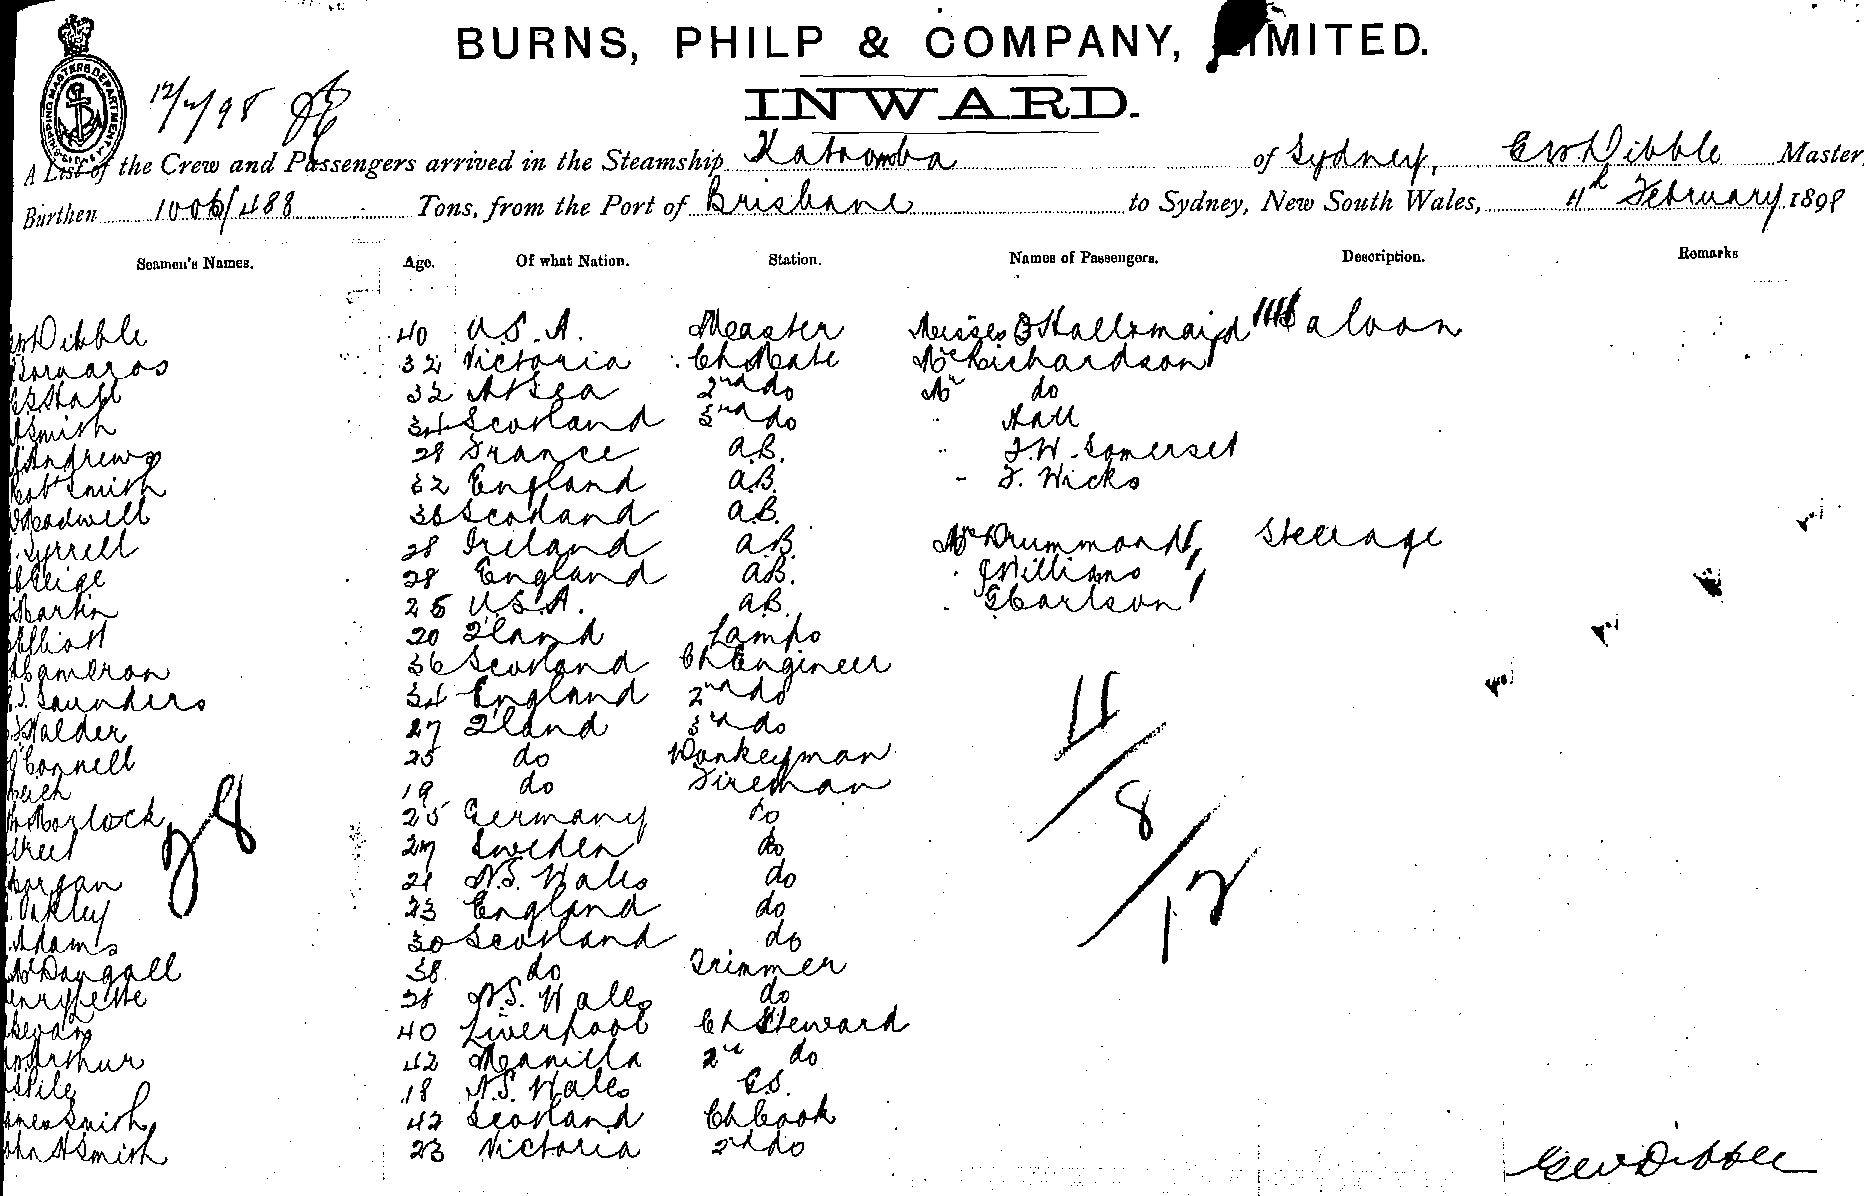 BURNS, PHILP & COMPANY, LIMITED.
INWARD.
SHIPPING MASTERS DEPARTMENT
12/2/98
A List of the Crew and Passengers arrived in the Steamship Katoomba of Sydney, EW Dibble Master,
Burthen 1006/488 Tons, from the Port of Brisbane to Sydney, New South Wales, 11th February 1898
Seamen's Names. Age. Of what Nation. Station. Names of Passengers. Description. Remarks
EW Dibble 40 U.S.A. Master Misses Hallsmaid Saloon
32 Victoria Ch Mate Mrs Richardson
Hall 32 At Sea 2nd do Mr do
Smith 34 Scotland 3rd do Hall
Andrews 29 France a.B. F.W. Somerset
Robt Smith 32 England a.B. F. Wicks
36 Scotland a.B.
Tyrrell 28 Ireland a.B. Mr Drummond Steerage
28 England a.B. J Williams
Martin 25 U.S.A. a.B. G Carlson
Elliott 20 Q'land Lamps
Cameron 36 Scotland Ch Engineer
Saunders 34 England 2nd do
Walder 27 Q'land 3rd do
O'Connell 25 do Donkeyman
19 do Fireman
Morlock 25 Germany do
Street 27 Sweden do
Morgan 21 N.S. Wales do
Oakley 23 England do
Adams 30 Scotland do
McDougall 38 do Trimmer
28 N.S. Wales do
Bevan 40 Liverpool Ch Steward
McArthur 42 Manilla 2nd do
18 N.S. Wales C.S.
James Smith 42 Scotland Ch Cook
John H Smith 23 Victoria 2nd do
28
11/8/12
EW Dibble